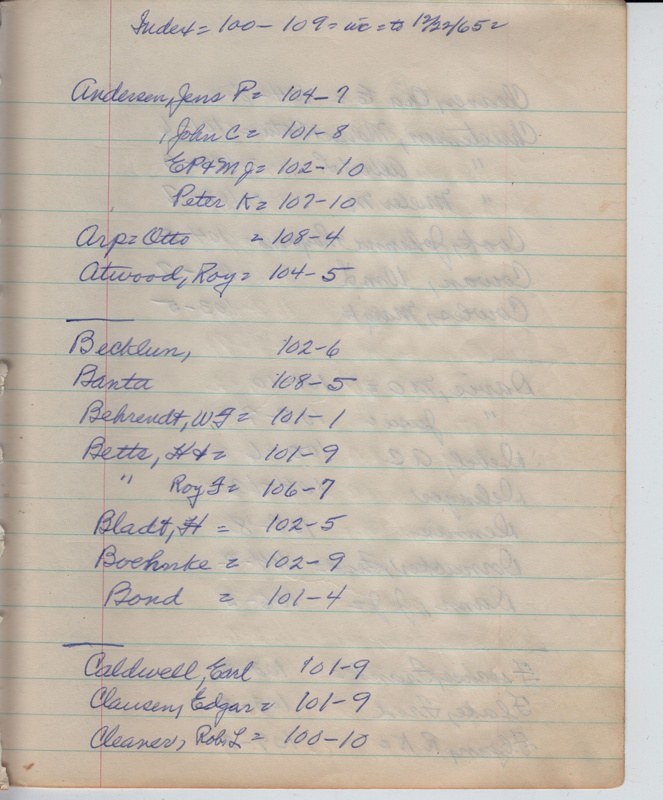 Index = 100 - 109 = inc = to 12/22/65 =
Andersen, Jens P = 104-7
, John C = 101-8
EP & M J = 102-10
Peter K = 107-10
Arp = Otto = 108-4
Atwood, Roy = 104-5
Becklun, 102-6
Banta 108-5
Behrendt, W F = 101-1
Betts, H = 101-9
" Roy F = 106-7
Bladt, H = 102-5
Boehnke = 102-9
Bond = 101-4
Caldwell, Earl 101-9
Clausen, Edgar = 101-9
Cleaner, Robt L = 100-10